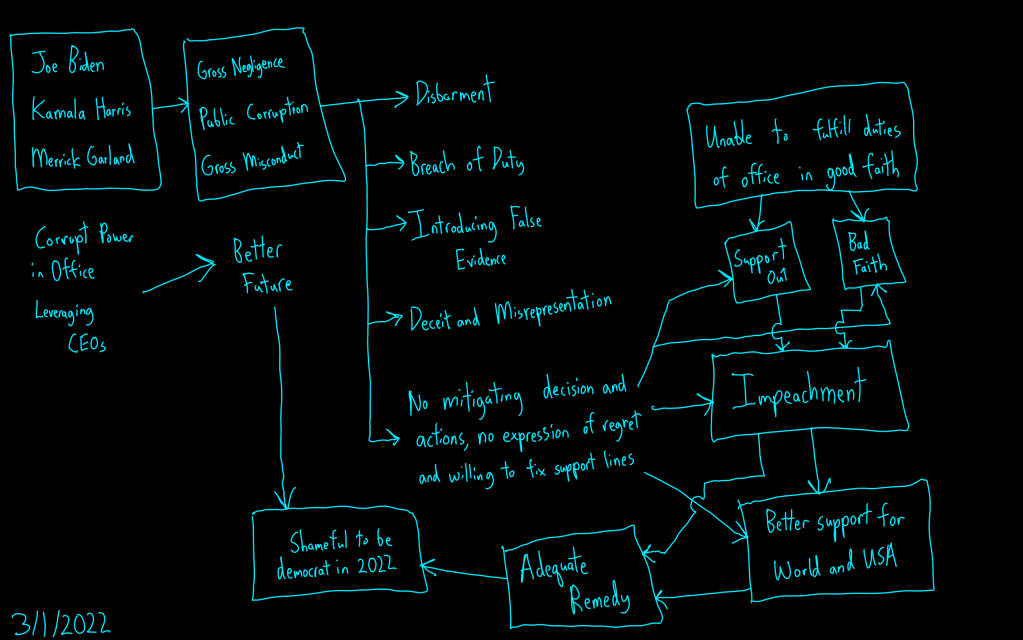 Joe Biden
Kamala Harris
Merrick Garland
Gross Negligence
Public Corruption
Gross Misconduct
Disbarment
Breach of Duty
Introducing False
Evidence
Deceit and Misrepresentation
No mitigating decision and
actions, no expression of regret
and willing to fix support lines
Unable to fulfill duties
of office in good faith
Support
Out
Bad
Faith
Impeachment
Better support for
World and USA
Adequate
Remedy
Corrupt Power
in Office
Leveraging
CEOs
Better
Future
Shameful to be
democrat in 2022
3/1/2022